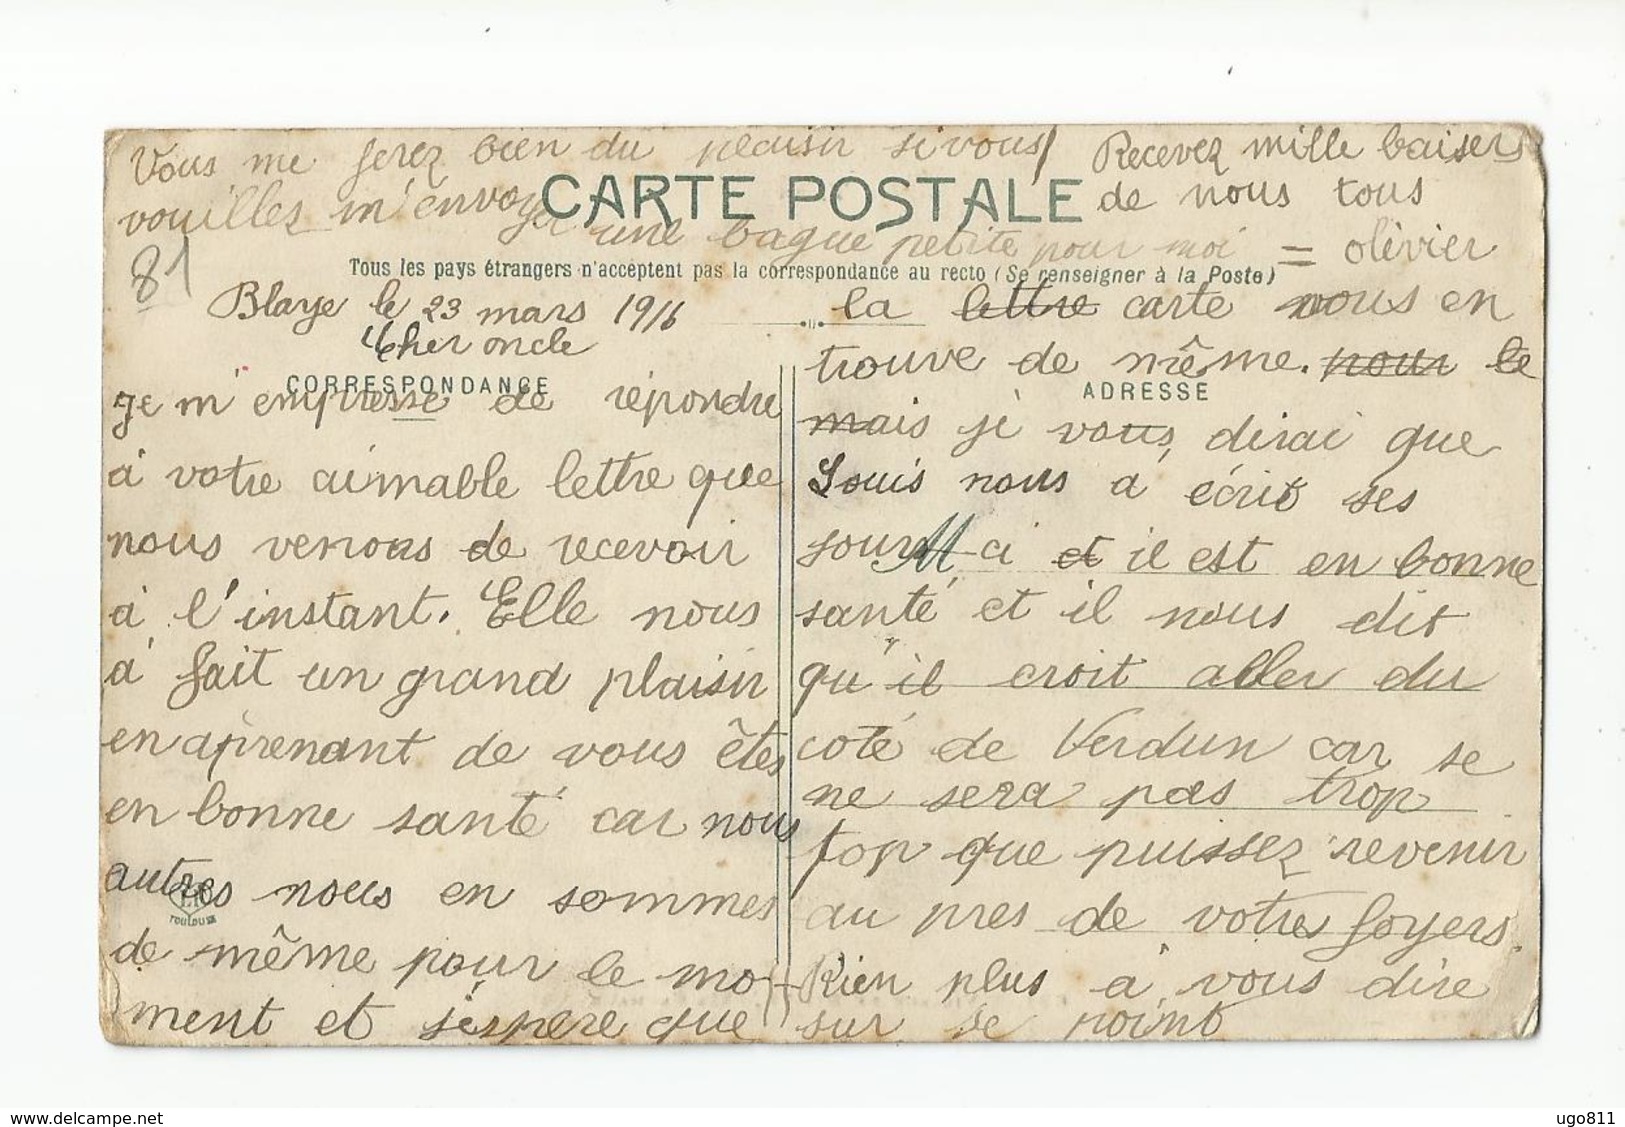 Vous me ferez bien du plaisir si vous
vouillez m'envoyer une bague petite pour moi
CARTE POSTALE
Tous les pays étrangers n'acceptent pas la correspondance au recto (Se renseigner à la Poste)
81
Blaye le 23 mars 1916
Cher oncle
CORRESPONDANCE
Je m'empresse de répondre
à votre aimable lettre que
nous venons de recevoir
à l'instant. Elle nous
à fait un grand plaisir
en aprenant de vous êtes
en bonne santé car nous
autres nous en sommes
TOULOUSE
de même pour le mo-
ment et j'éspère que
Recevez mille baisers
de nous tous
= olivier
la lettre carte vous en
trouve de même. pour le
ADRESSE
mais je vous dirai que
Louis nous a écrit ses
jours ci et il est en bonne
santé et il nous dit
qu'il croit aller du
coté de Verdun car se
ne sera pas trop
top que puissez revenir
au pres de votres foyers.
Rien plus à vous dire
sur se point
www.delcampe.net
ugo811